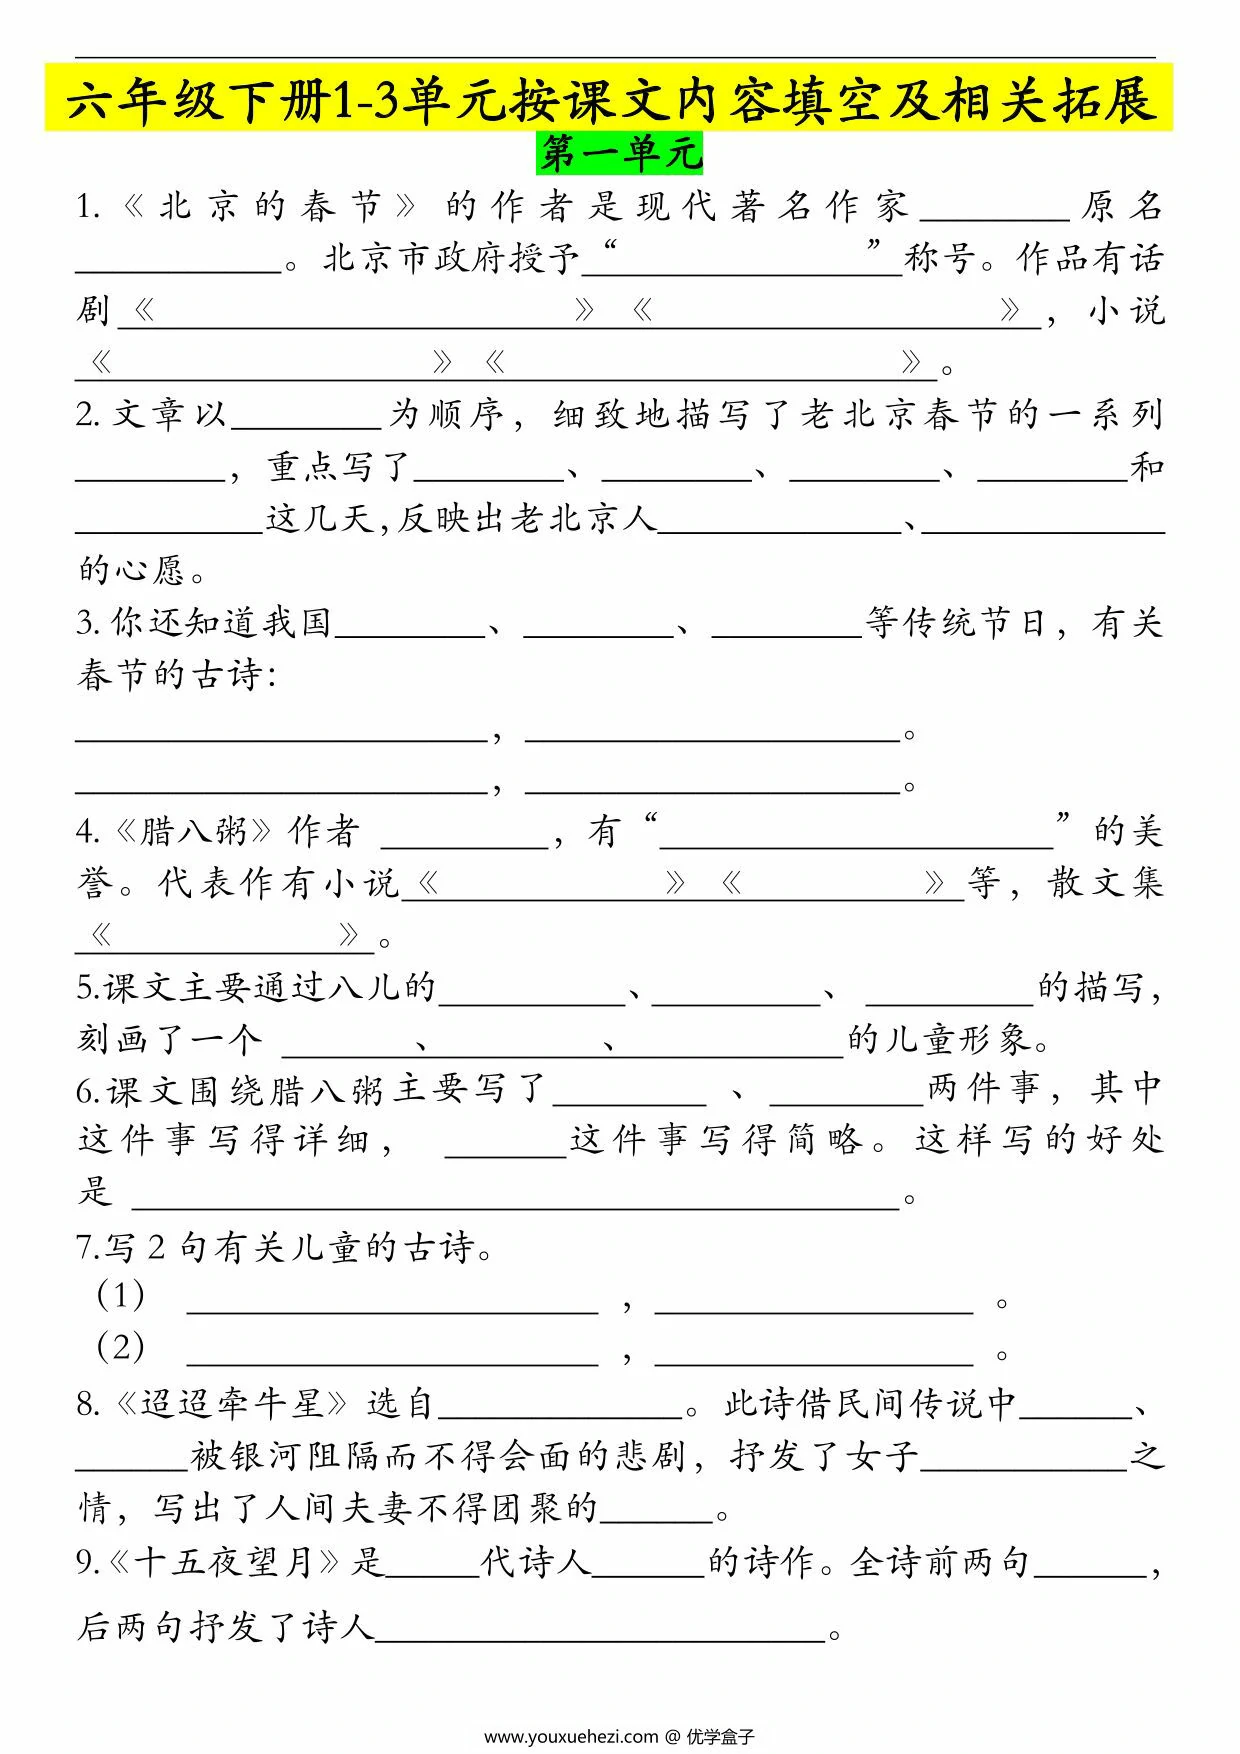 六年级下册1-3单元按课文内容填空及相关拓展
第一单元
1.《北京的春节》的作者是现代著名作家________原名
___________。北京市政府授予“_________________”称号。作品有话
剧《                    》《                    》，小说
《                    》《                    》。
2.文章以________为顺序，细致地描写了老北京春节的一系列
________，重点写了________、________、________、________和
__________这几天,反映出老北京人_____________、_____________
的心愿。
3.你还知道我国________、________、________等传统节日，有关
春节的古诗：
______________________，____________________。
______________________，____________________。
4.《腊八粥》作者 _________，有“_____________________”的美
誉。代表作有小说《            》《          》等，散文集
《            》。
5.课文主要通过八儿的__________、_________、 _________的描写，
刻画了一个 _______、_________、____________的儿童形象。
6.课文围绕腊八粥主要写了________ 、________两件事，其中
这件事写得详细， ______这件事写得简略。这样写的好处
是 _________________________________________。
7.写 2 句有关儿童的古诗。
（1） ______________________ ，_________________ 。
（2） ______________________ ，_________________ 。
8.《迢迢牵牛星》选自_____________。此诗借民间传说中______、
______被银河阻隔而不得会面的悲剧，抒发了女子___________之
情，写出了人间夫妻不得团聚的______。
9.《十五夜望月》是_____代诗人______的诗作。全诗前两句______，
后两句抒发了诗人________________________。
www.youxuehezi.com @ 优学盒子